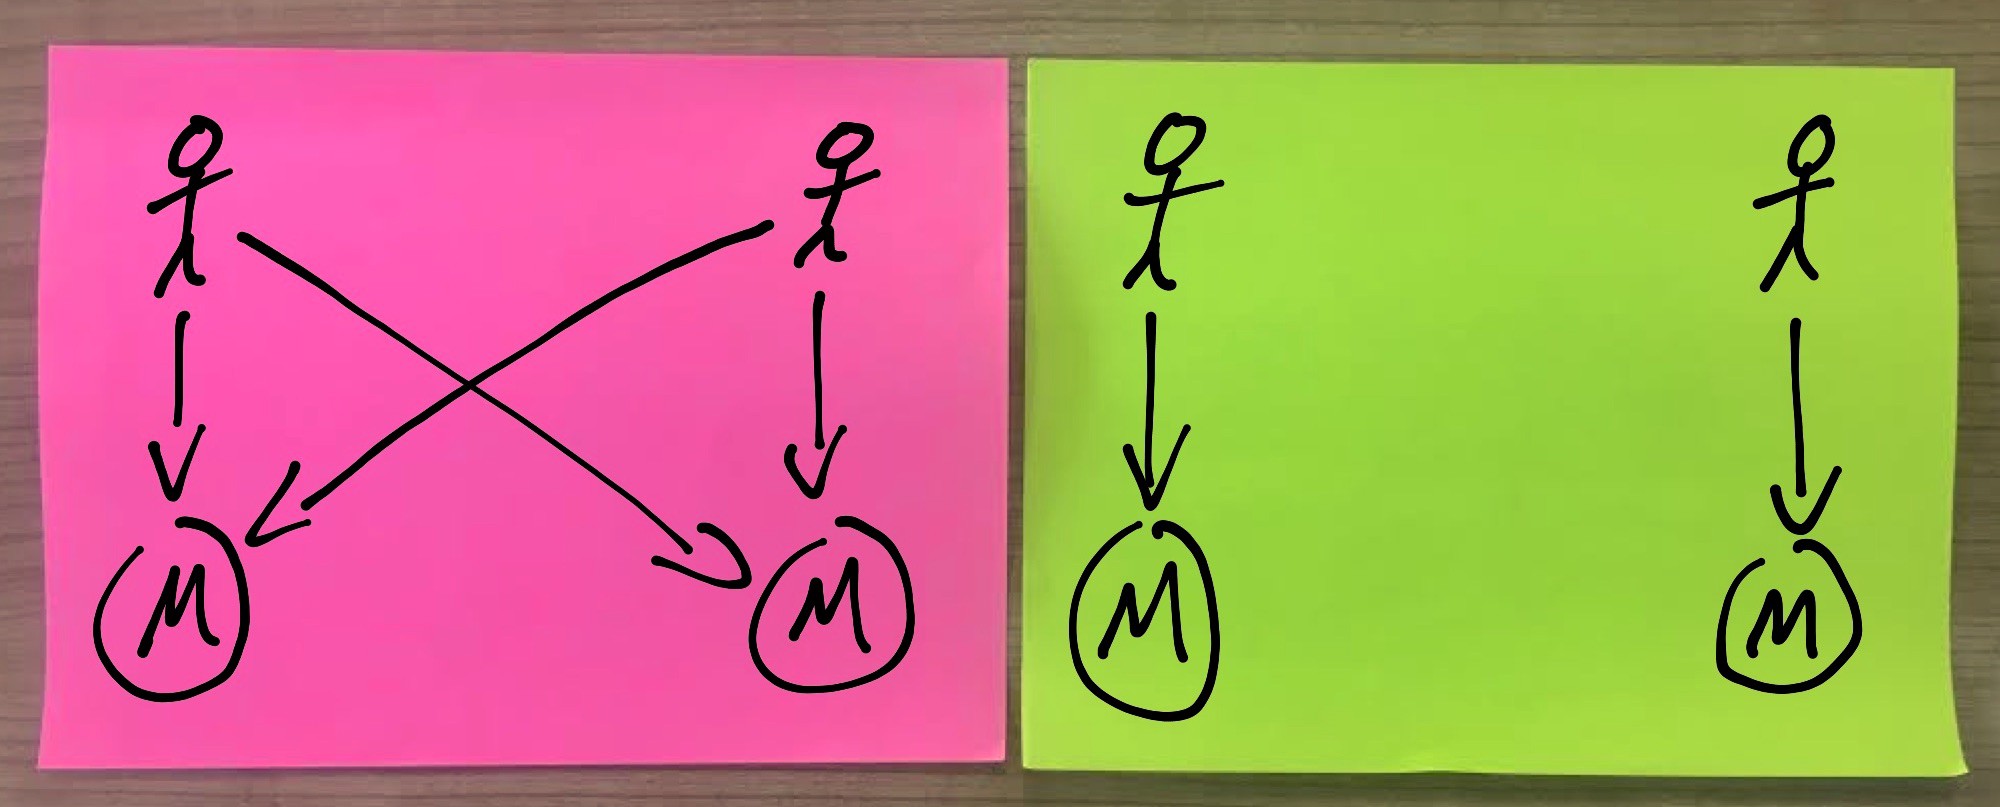 M M M M